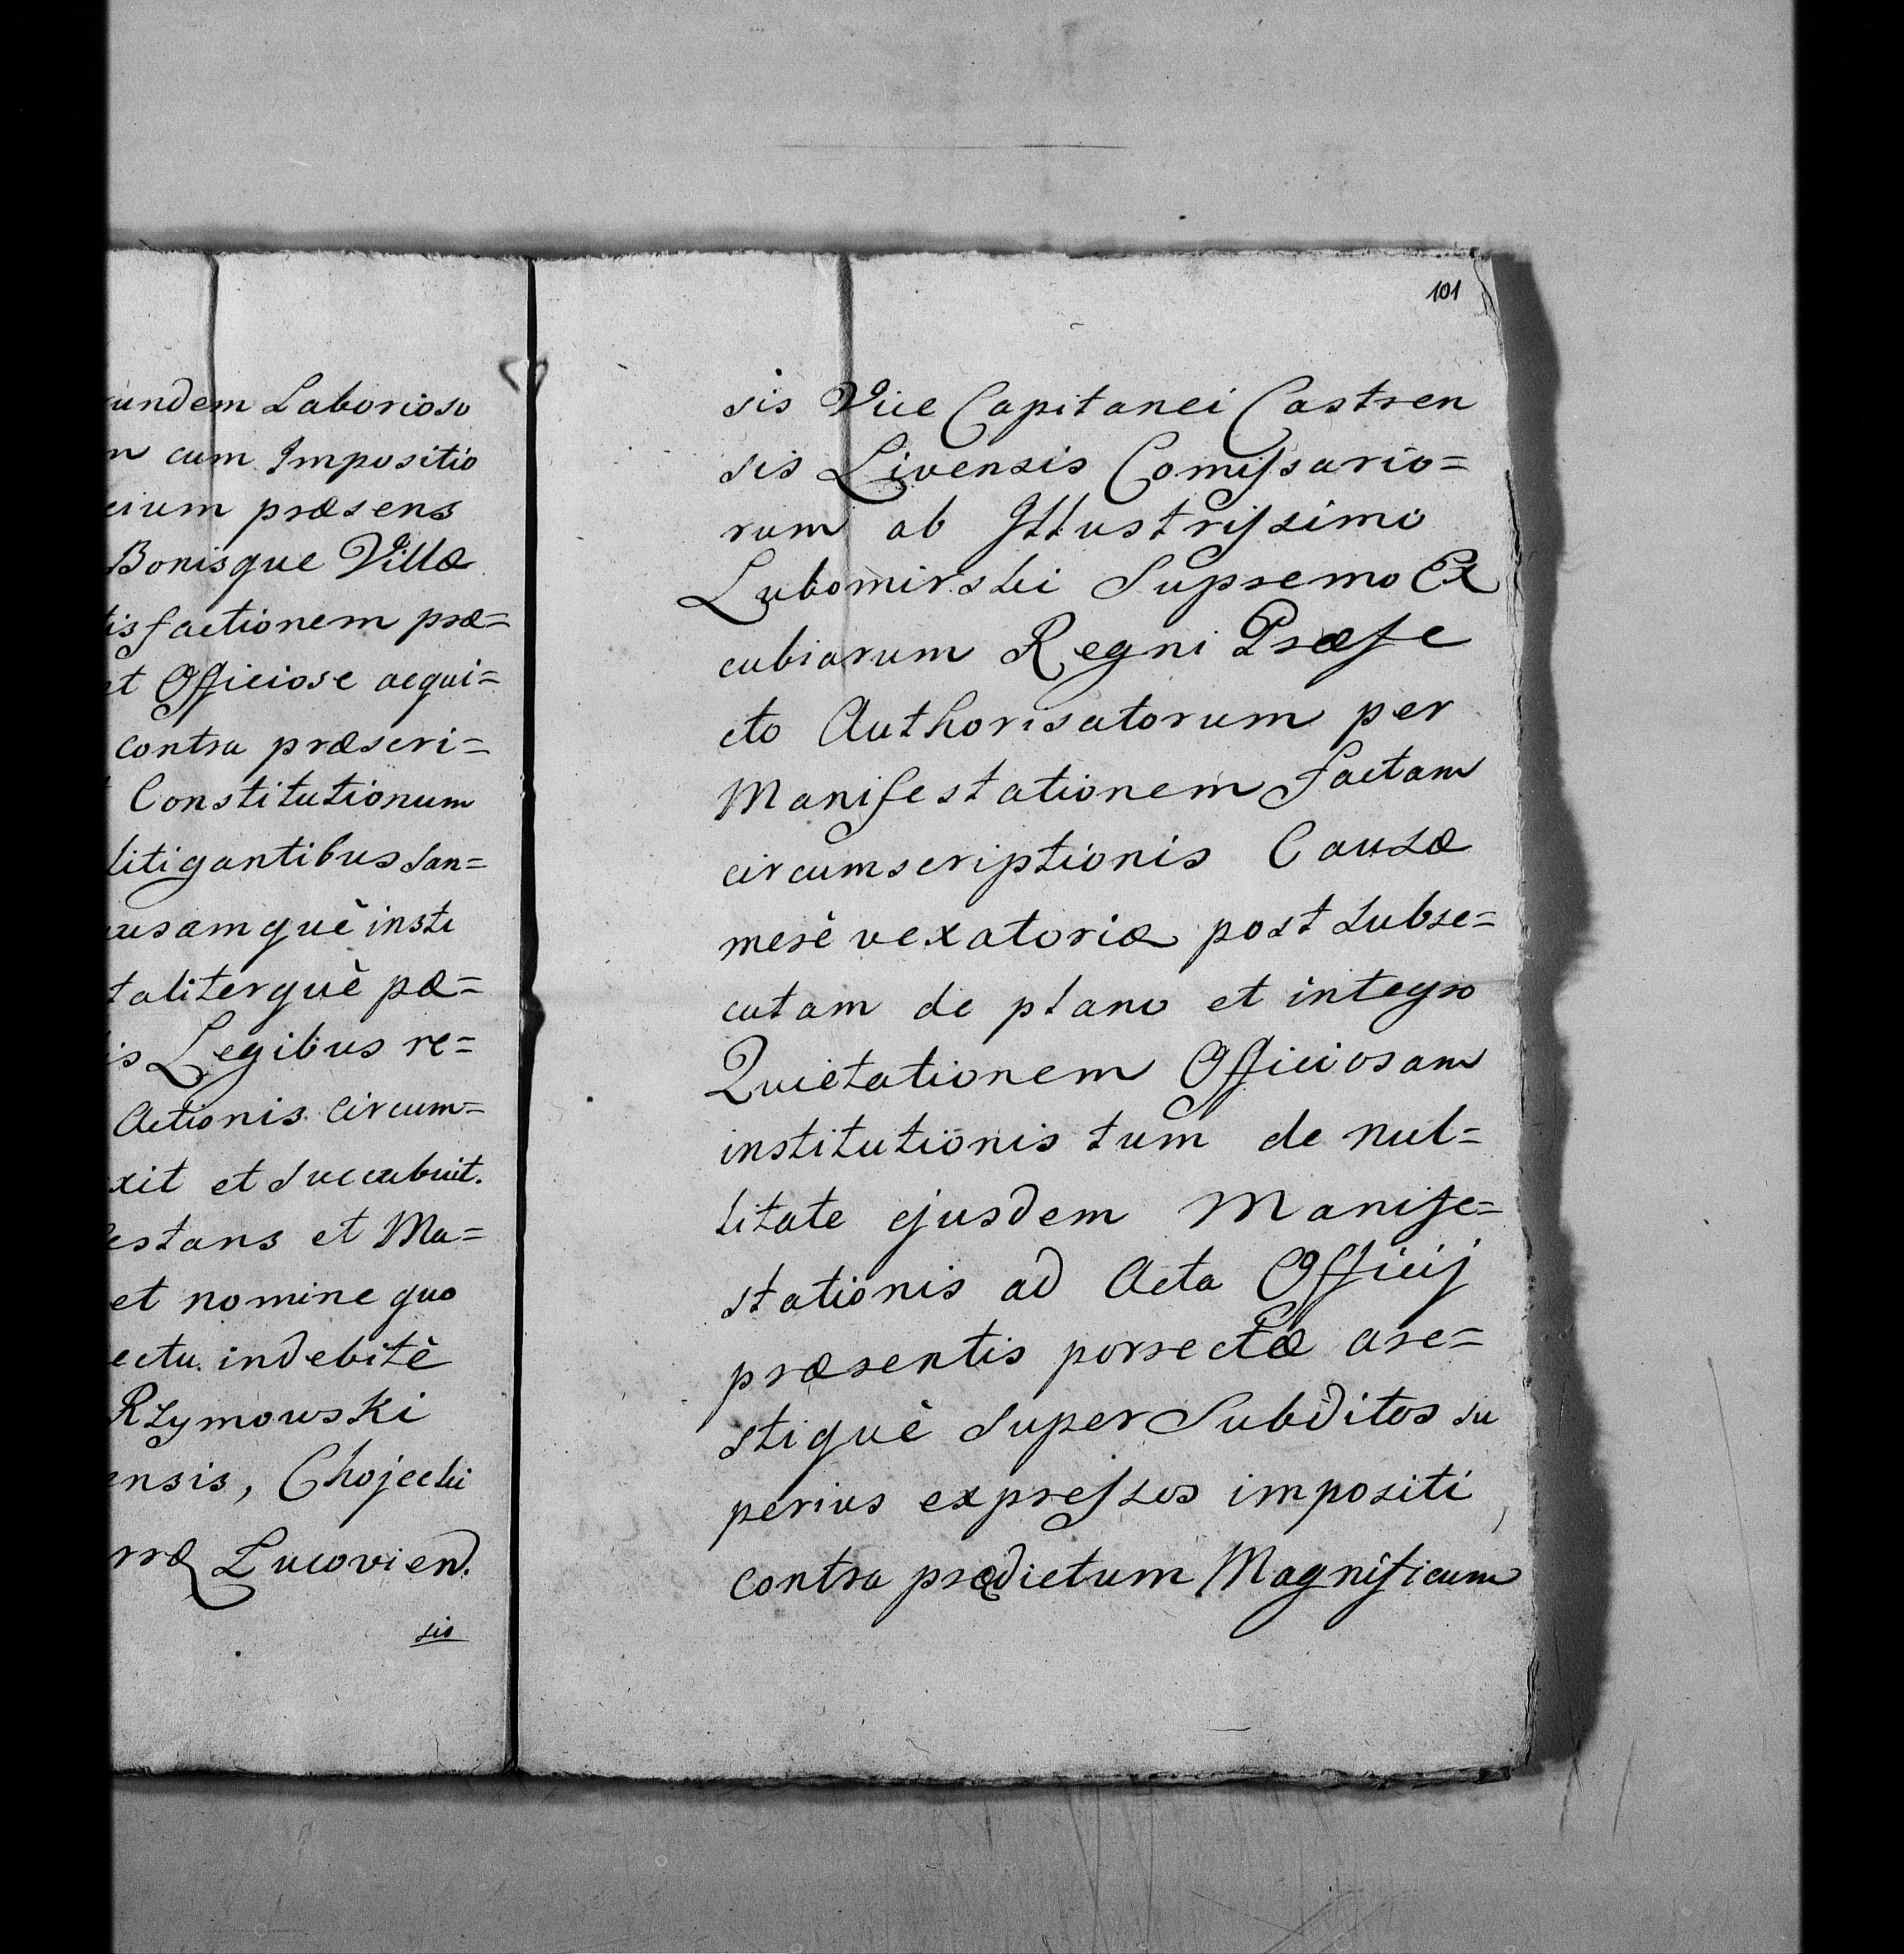 undem Laborioso
m cum Impositio
cium præsens
Bonisque Villæ
tisfactionem præ=
et Officiose acqui=
contra præscri=
Constitutionum
litigantibus san=
ausamquè insti
taliterquè pæ=
is Legibus re=
Actionis circum=
xit et succubuit.
festans et Ma=
et nomine quo
ectu indebitè
Rzymowski
ensis, Chojecki
rræ Lucovien.
sis
101
sis Vice Capitanei Castren
sis Livensis Comissario=
rum ab Illustrissimo
Lubomirski Supremo Ex
cubiarum Regni Præfe
cto Authorisatorum per
Manifestationem factam
circumscriptionis Causæ
merè vexatoriæ post subse=
cutam de plano et integro
Quietationem Officiosam
institutionis tum de nul=
litate ejusdem Manife=
stationis ad Acta Officij
præsentis porrectæ are=
stiquè super Subditos su
perius expressos impositi
contra prædictum Magnificum